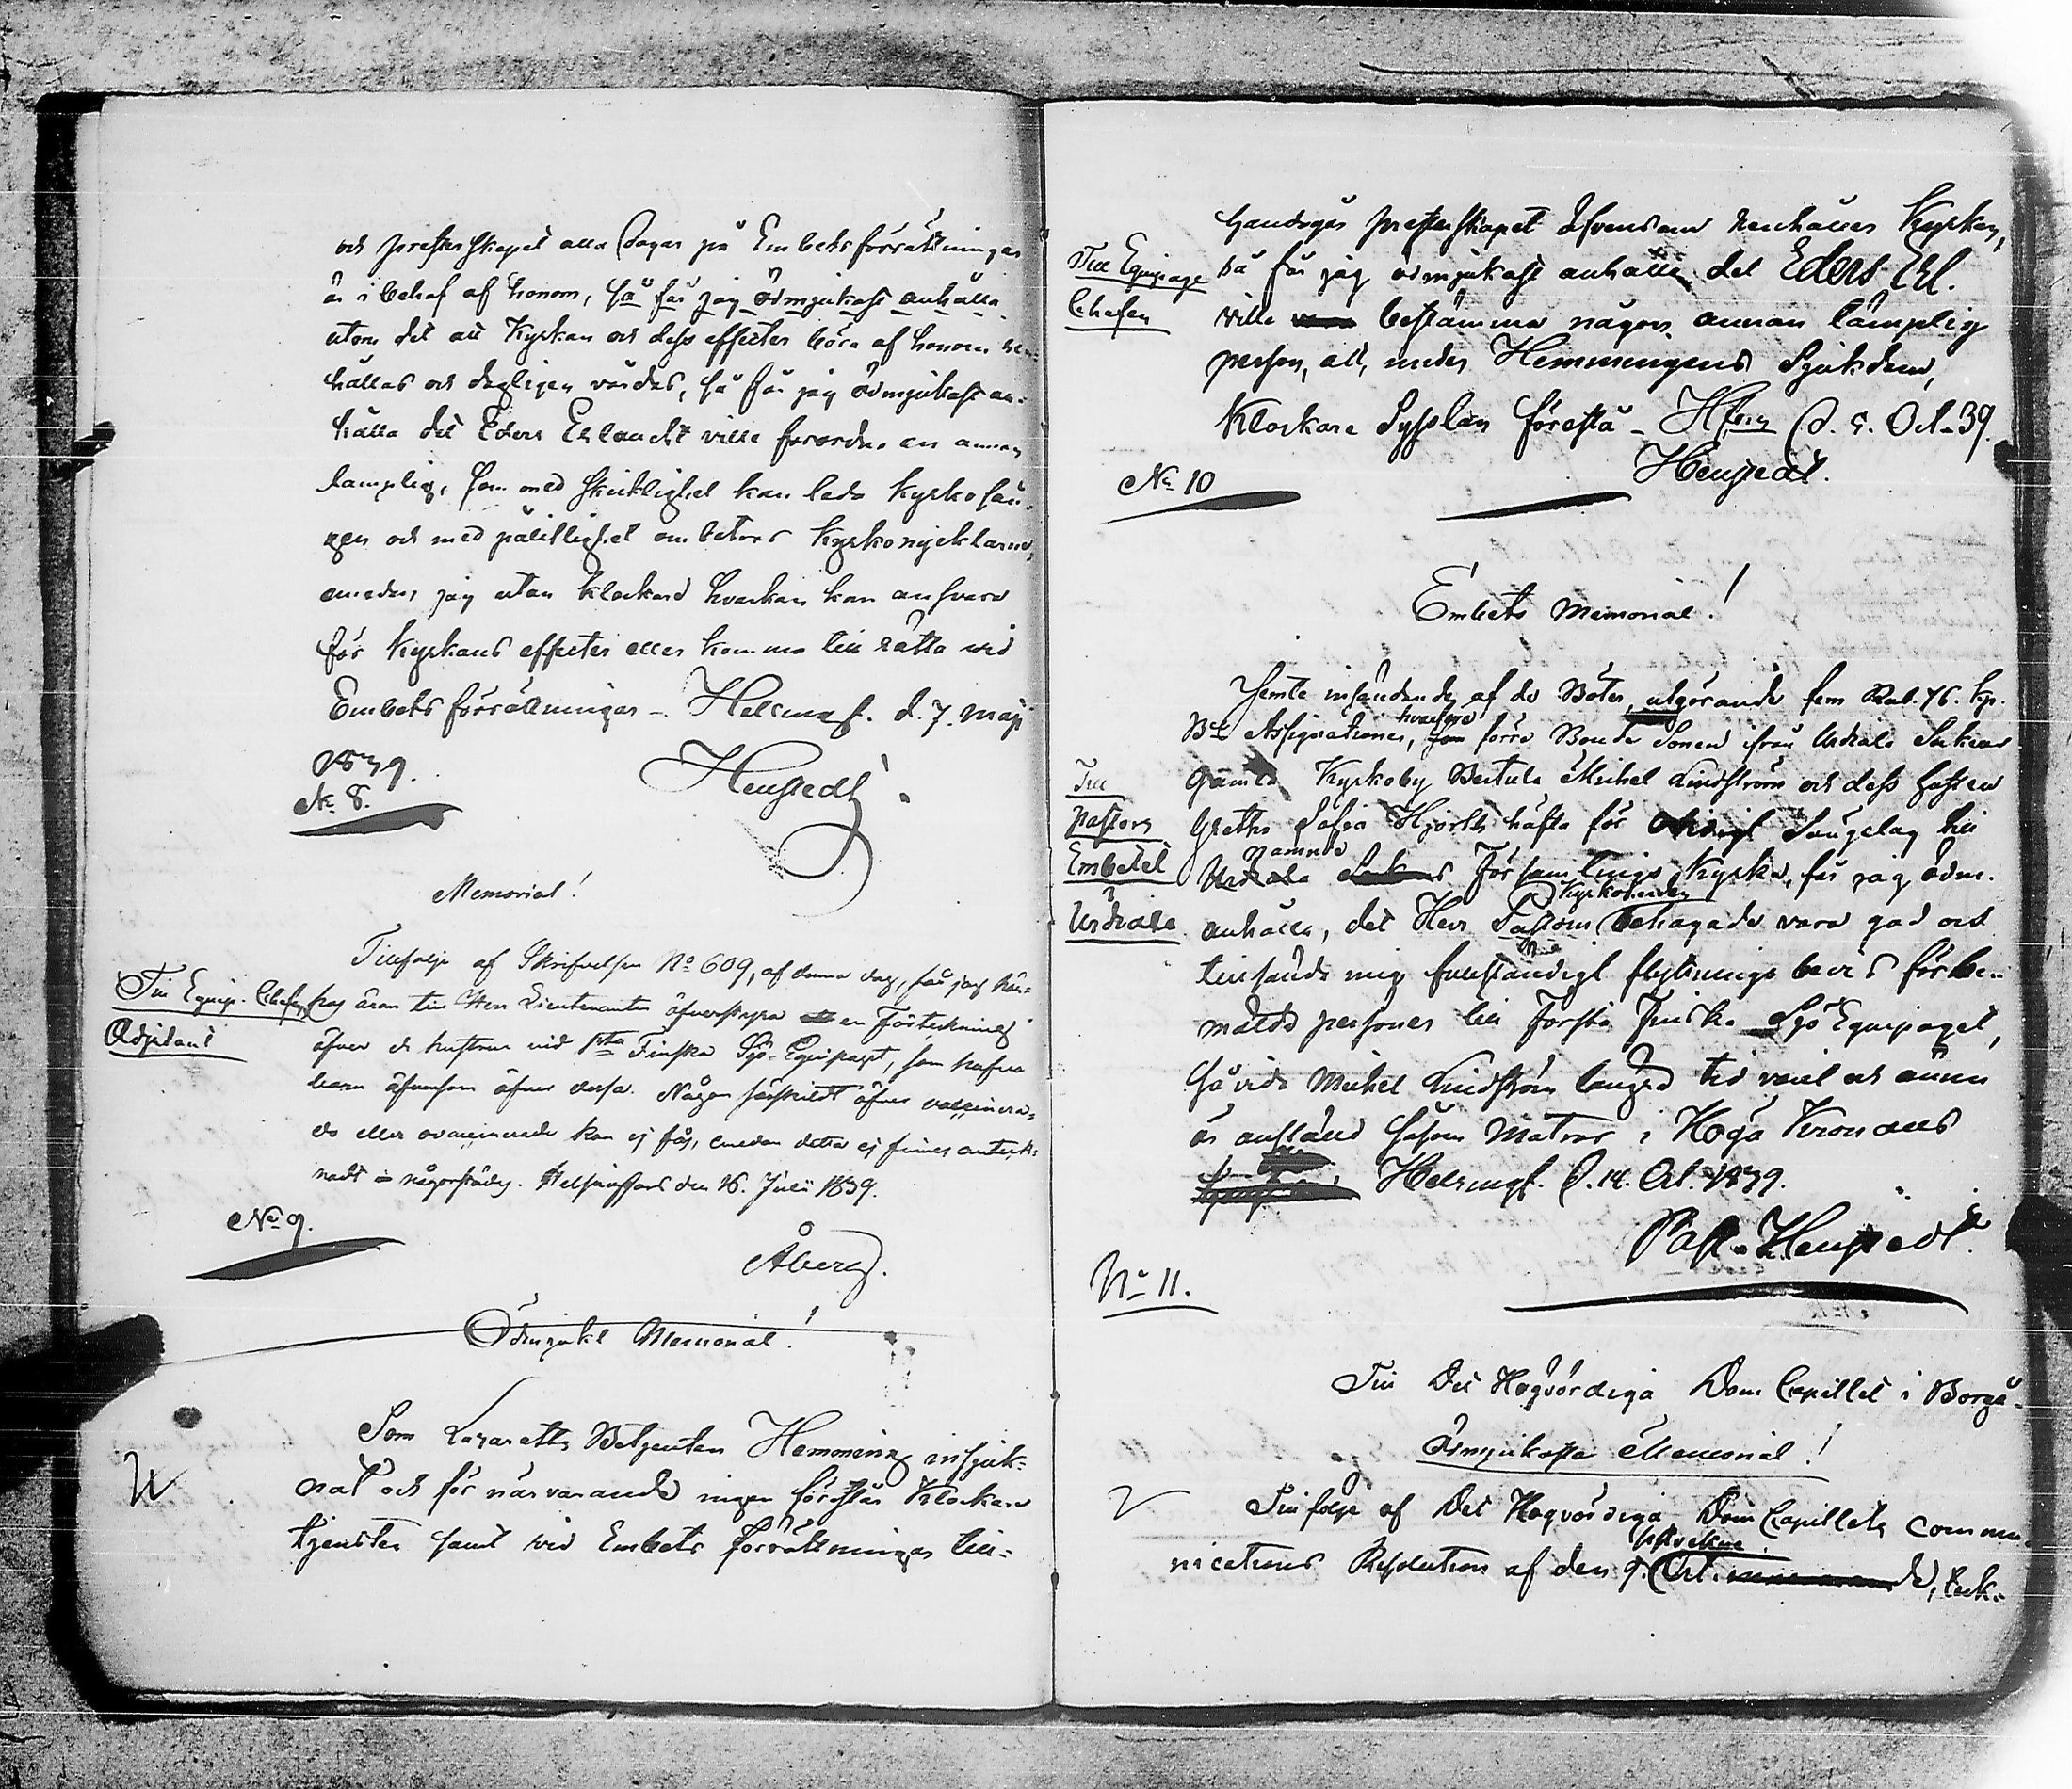 och presterskapet alla dagar på Embetsförrättningar
är i behof af honom, så får jag ödmjukast anhålla
utom det att Kyrkan och dess effecter böra af honom ren-
hållas och dagligen vårdas, så får jag ödmjukast an-
hålla det Eders Erlaucht ville förordna en annan
lämplig, som med skicklighet kan leda kyrkosån-
gen och med pålitlighet ombetros Kyrkonycklarne,
emedan jag utan klockare hvarken kan ansvara
för Kyrkans effecter eller komma till rätta vid
Embetsförrättningar – Helsingf. d. 7. Maji
1839.
Henstedt.
No 8.
Memorial!
Till Equip. Chefens
Adjutant
Tillfölje af Skrifvelsen No 609, af denna dag, får jag här-
hos äran till Herr Lieutenanten öfverstyra en Förteckning
öfver de hustrur vid 1sta Finska Sjö-Equipaget, som hafva
barn äfvensom öfver dessa. Någon särskildt öfver vaccinera-
de eller ovaccinerade kan ej fås, emedan detta ej finnes anteck-
nadt någorstädes. Helsingfors den 16. Julii 1839.
No 9.
Åberg.
Ödmjukt Memorial!
Som Lazaretts Betjenten Hemming insjuk-
nat och för närvarande ingen förestår Klockare
tjensten samt vid Embets förrättningar till-
handogår presterskapet äfvensom renhåller Kyrkan,
Till Equipage
Chefen
så får jag ödmjukast anhålla det Eders Erl.
ville bestämma någon annan lämplig
person, att, under Hemmingens Sjukdom,
Klockare Sysslan förestå – Hfors d. 5. Oct. 39.
Henstedt.
No 10
Embets Memorial!
Jemte insändande af de Böter, utgörande fem Rub. 76. Kp.
Bco Assignationer, hvarföre förre Bonde Sonen ifrån Urdiala Sockens
Till
Pastors
Embetet
i
Urdiala
gamla Kyrkoby Bertula Michel Lindström och dess hustru
Gretha Sofia Hjorth häfta för Sängelag till
namnde Församlings Kyrka, får jag ödm.
anhålla, det Herr Kyrkoherden behagade vara god och
tillsända mig fullständigt flyttnings bevis för be-
mälde personer till Första Finska Sjö Equipaget,
såvida Michel Lindström längre tid varit och ännu
är anstäld såsom Matros i Höga Kronans
Helsingf. d. 14. Oct. 1839.
Past. Henstedt.
No 11.
Till Det Högvördiga Dom Capitlet i Borgå.
Ödmjukaste Memorial!
Till följe af Det Högvördiga Dom Capitlets commu-
nications Resolution af den 9. Oct. , teck-